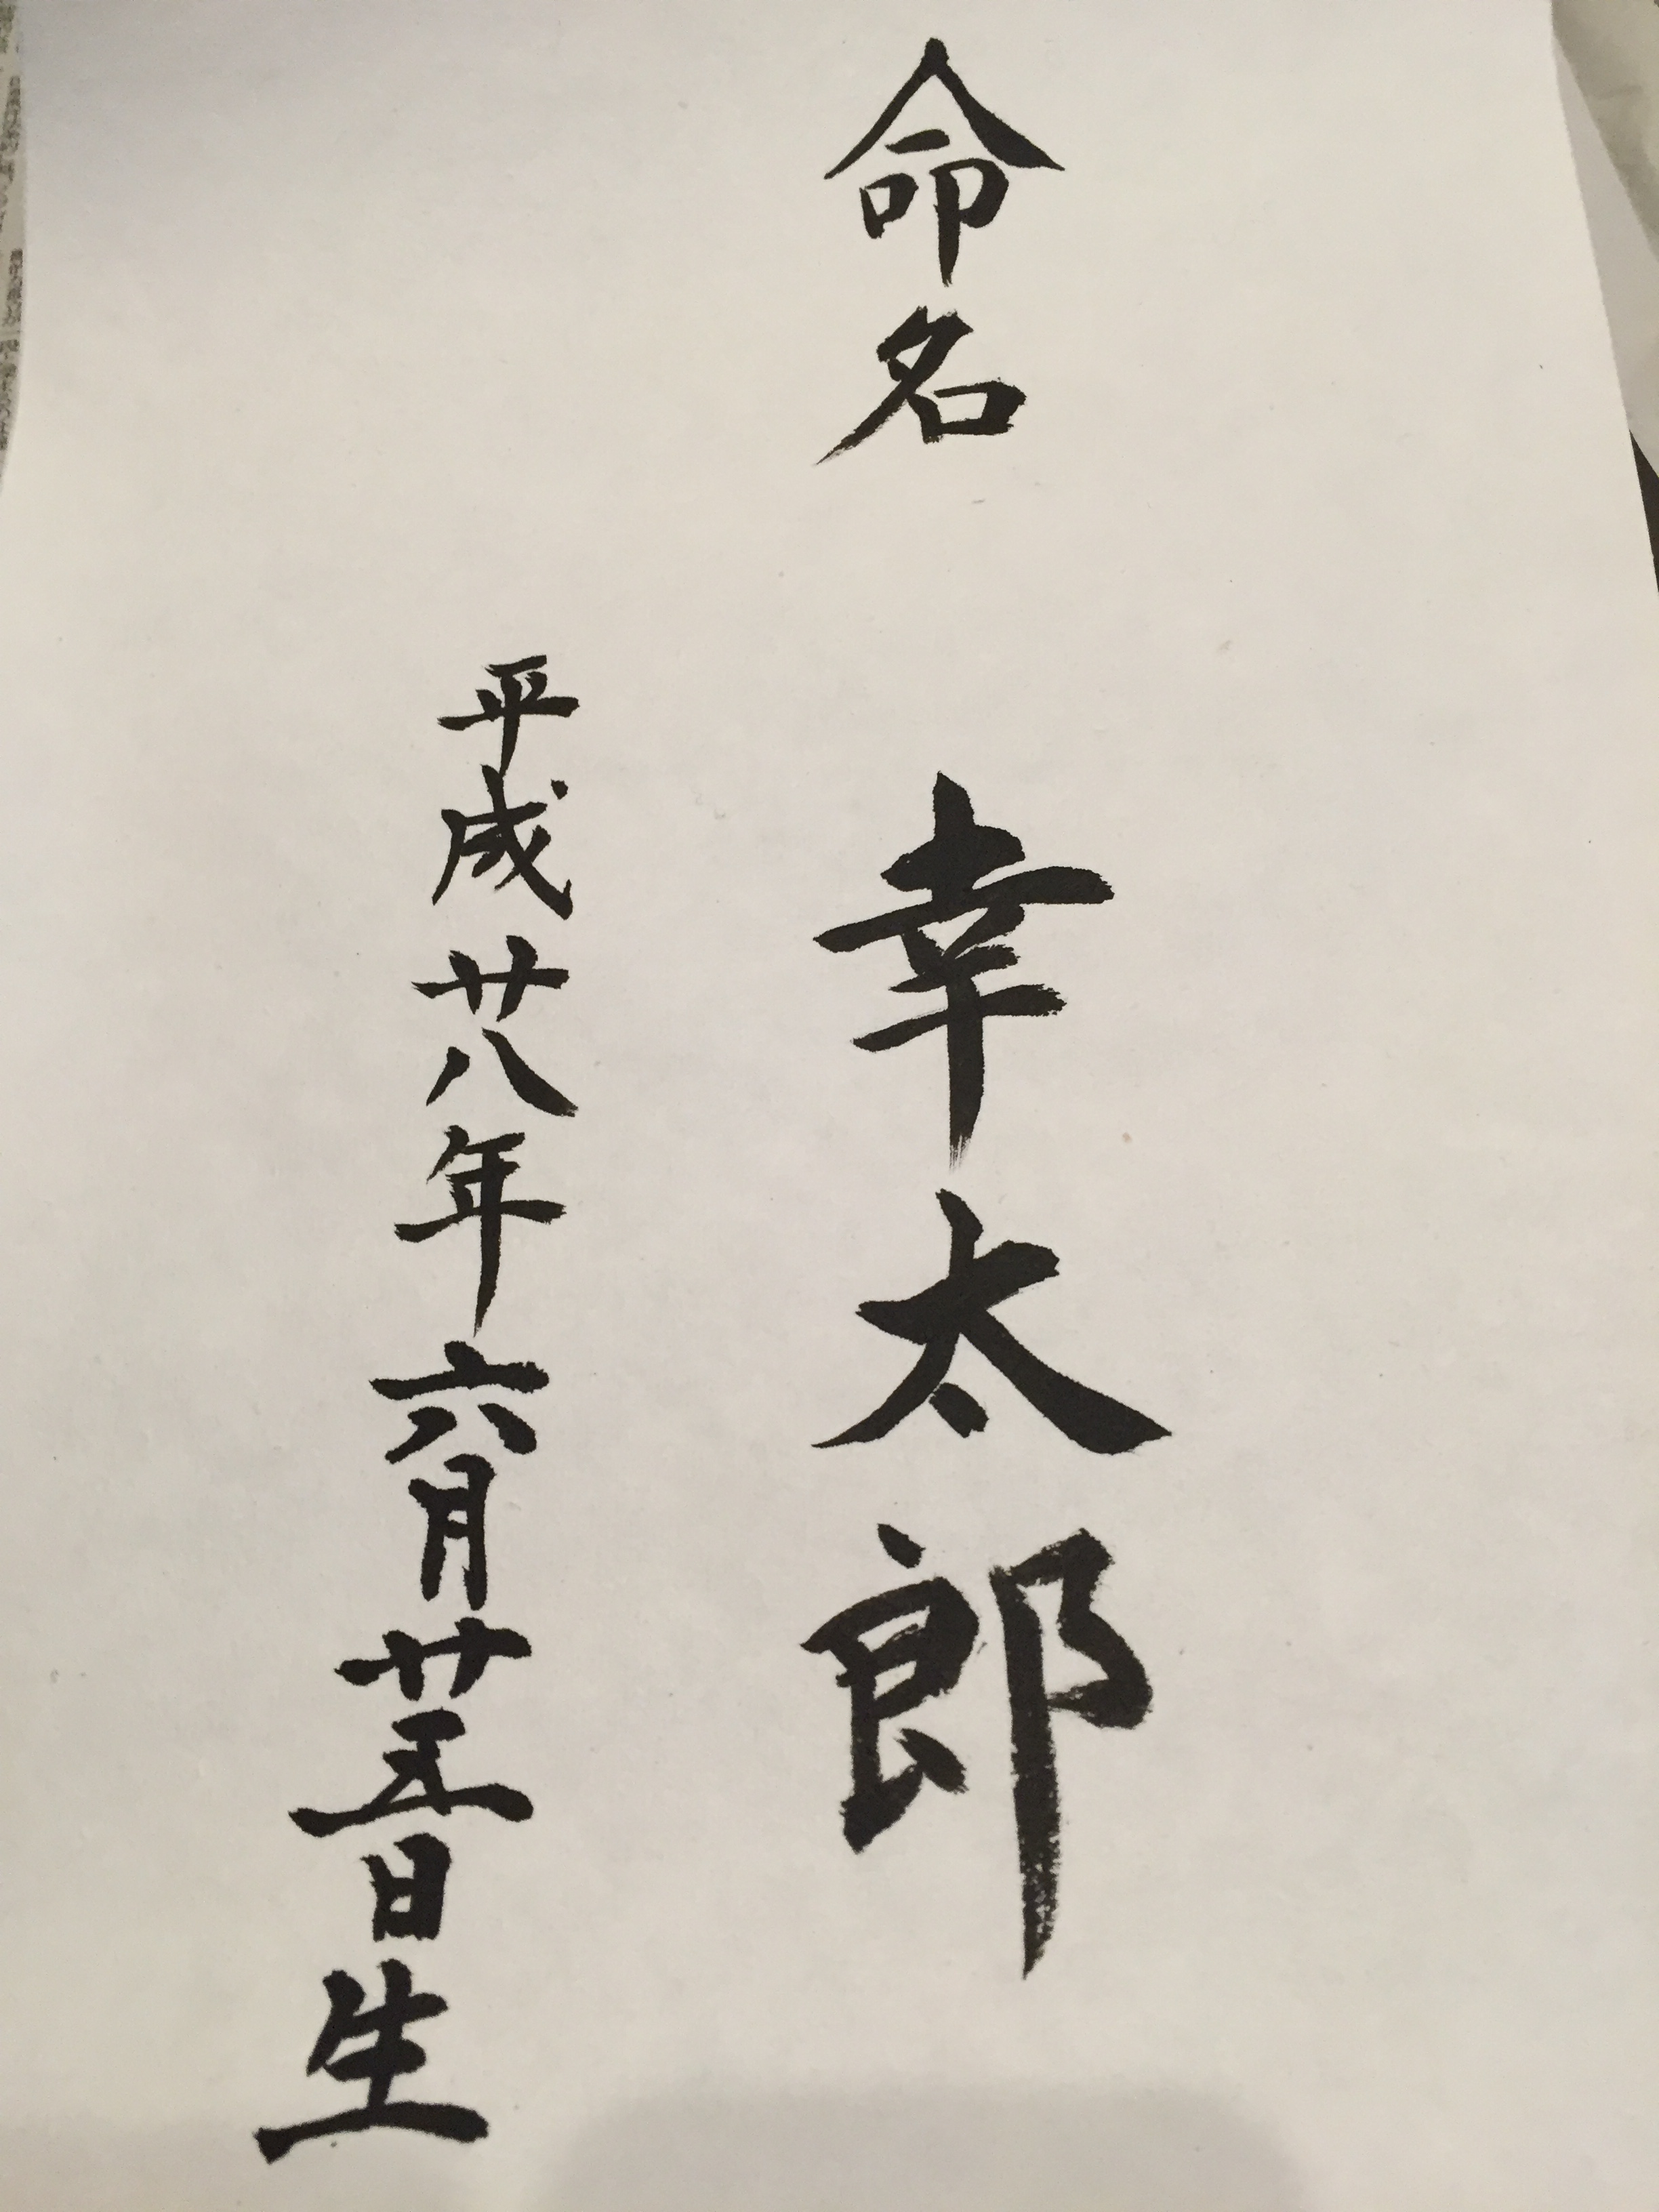 命名 幸太郎
平成廿八年六月廿五日生